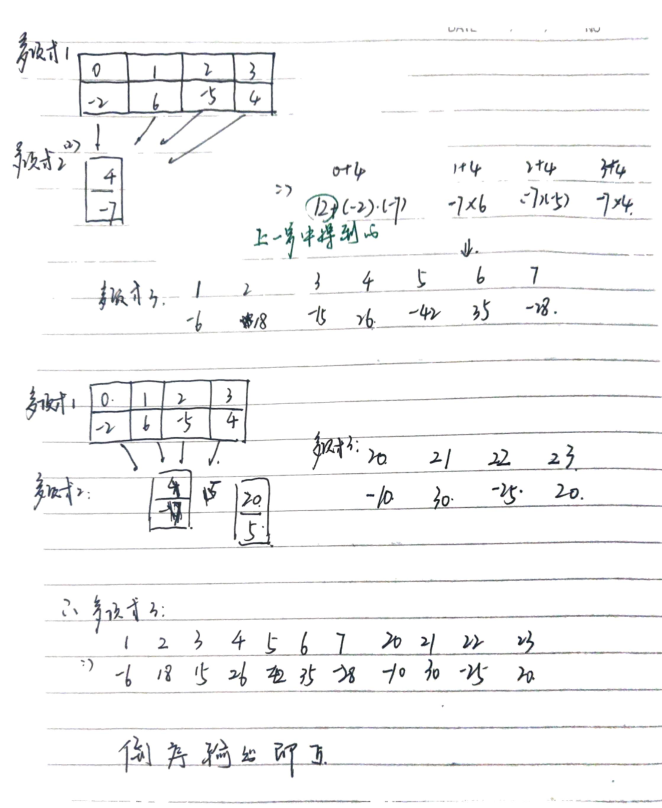 DATE . / NO
多项式1
0 1 2 3
-2 6 -5 4
多项式2 =>
4
-7
=> 0+4 1+4 2+4 3+4
12+(-2)·(-7) -7×6 -7×(-5) -7×4
上一步中得到的
多项式3. 1 2 3 4 5 6 7
-6 18 -15 26 -42 35 -28.
多项式1 0. 1 2 3
-2 6 -5 4
多项式2: 4 20
5.
多项式3: 20 21 22 23
-10 30. -25. 20.
∴ 多项式3:
1 2 3 4 5 6 7 20 21 22 23
=> -6 18 15 26 35 -28 -10 30 -25 20.
倒序输出即可.